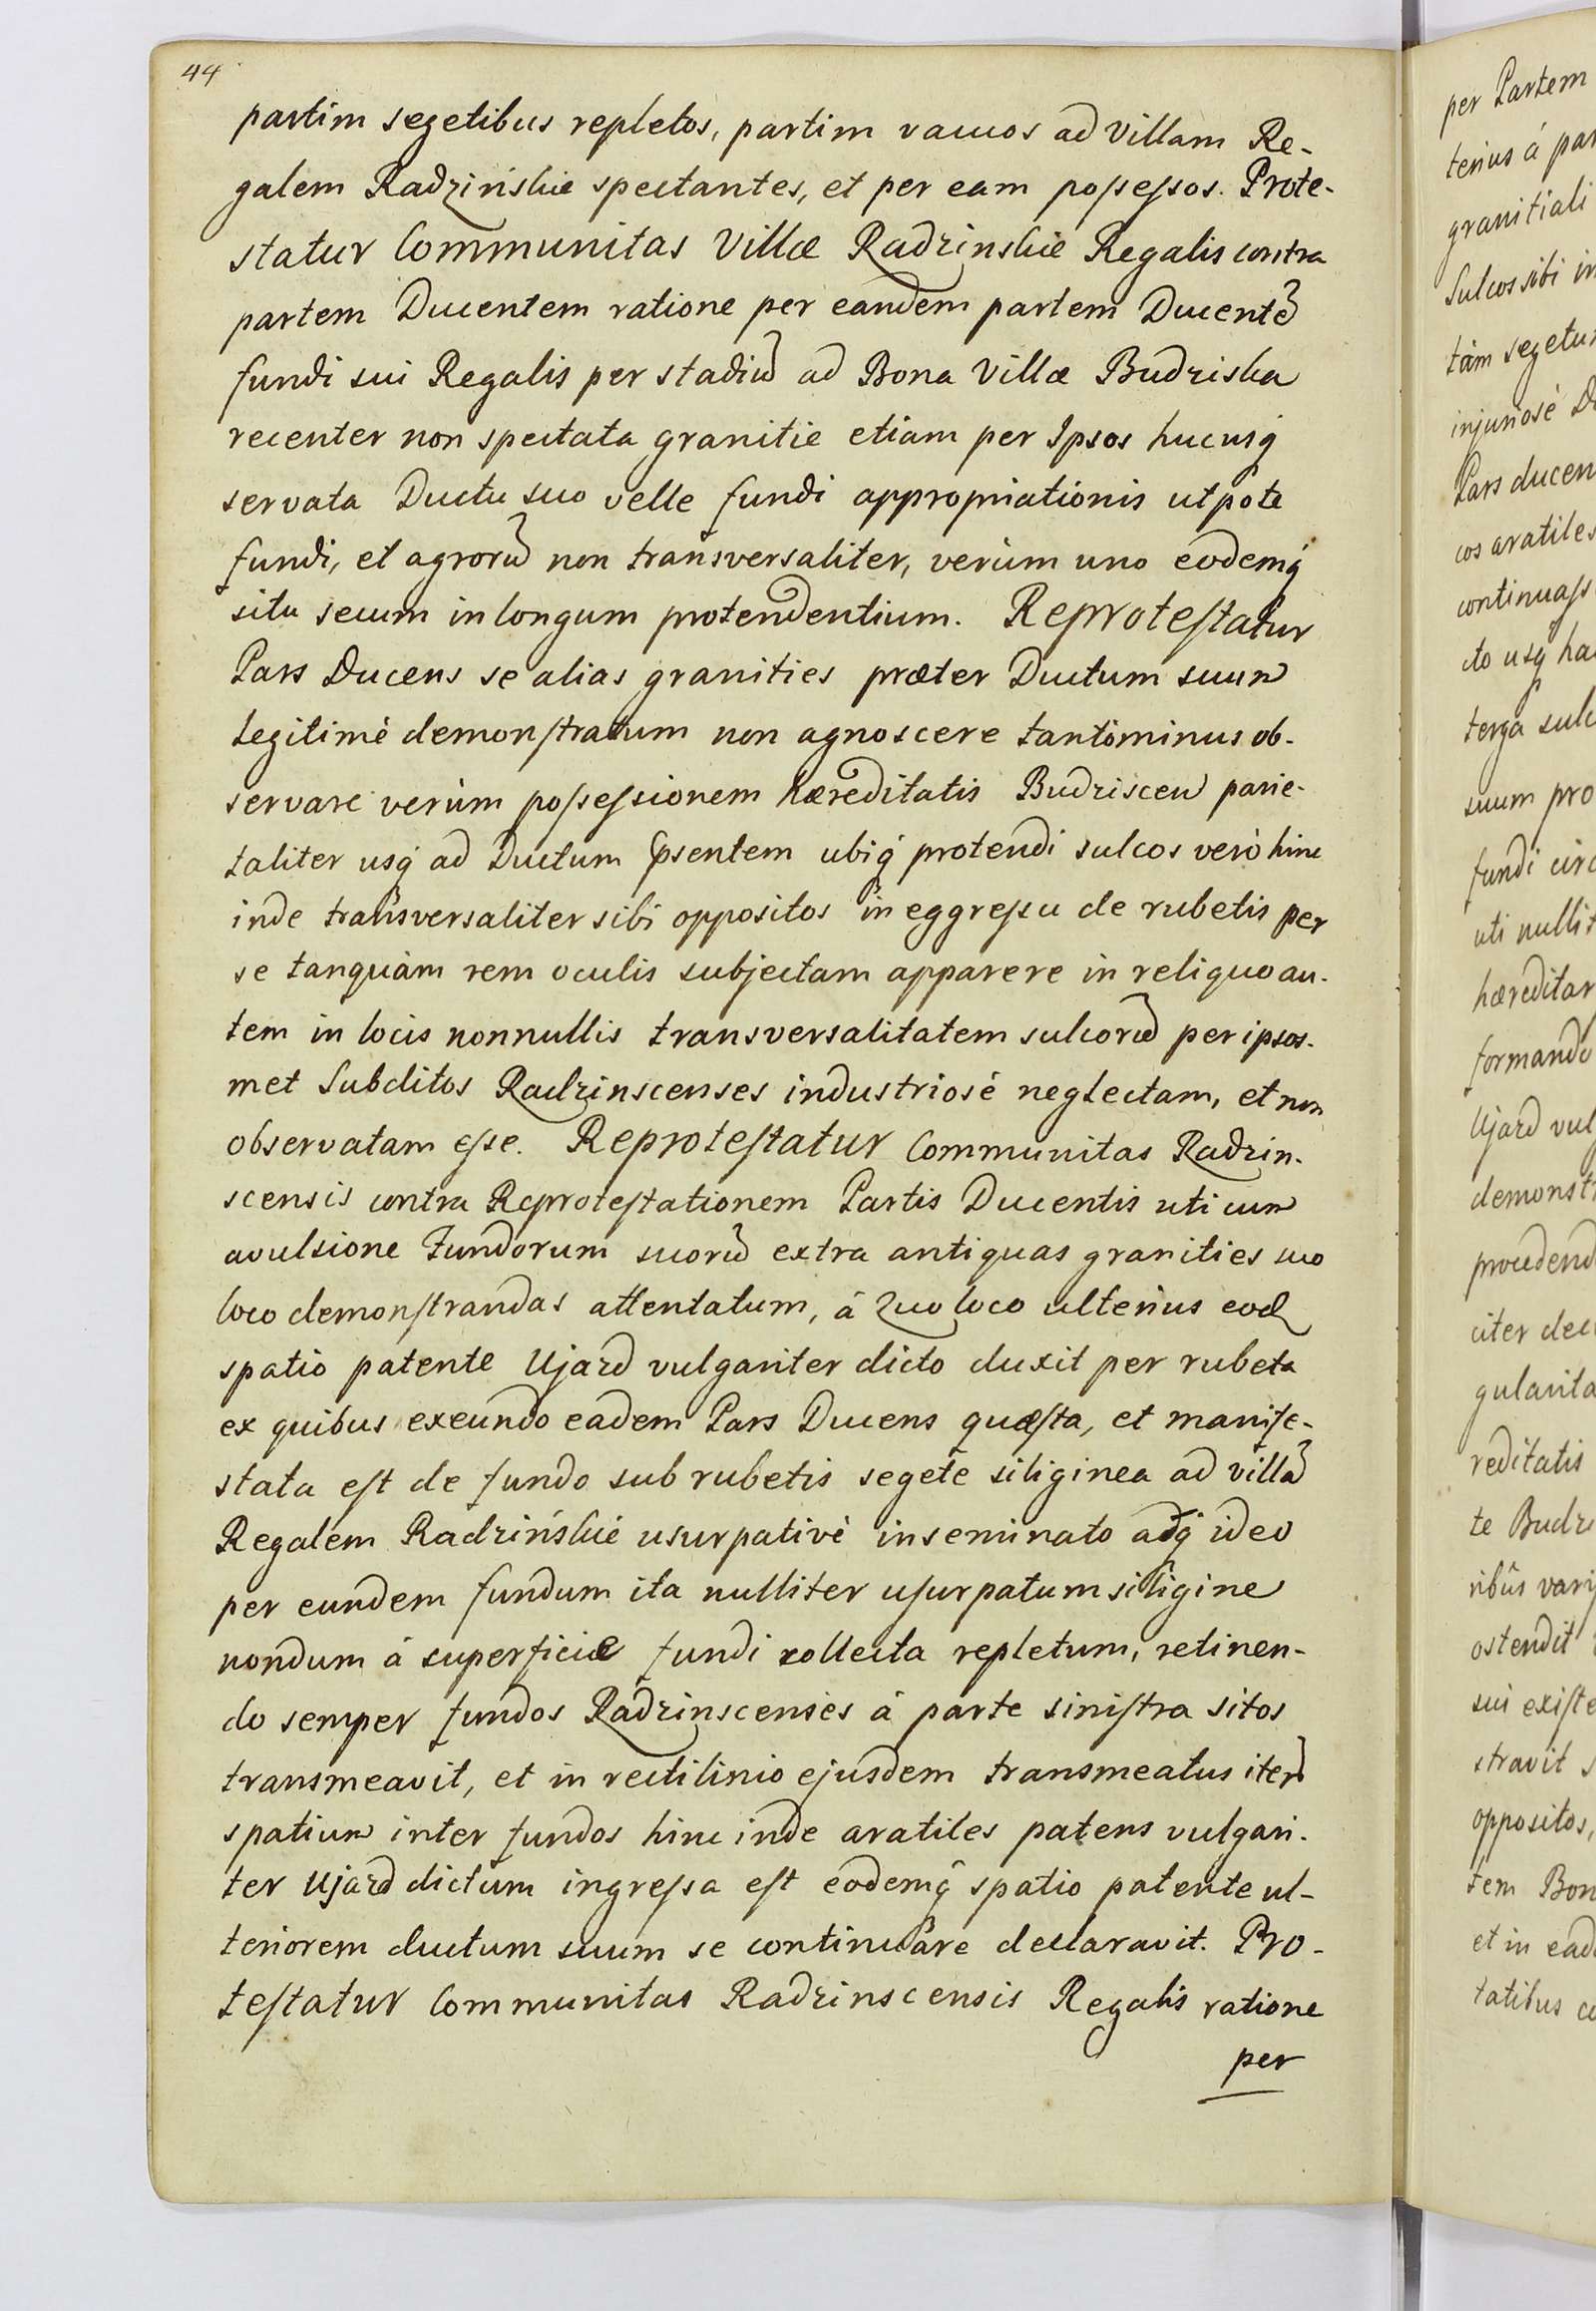 44
partim segetibus repletos, partim vacuos ad Villam Re-
galem Radzińskie spectantes, et per eam possessos. Prote-
statur Communitas Villæ Radzinskie Regalis contra
partem Ducentem ratione per eandem partem Ducentē
fundi sui Regalis per stadiū ad Bona Villæ Budziska
recenter non spectata granitie etiam per Ipsos hucusq̀
servata Ductu suo velle fundi appropriationis utpote
fundi, et agrorū non transversaliter, verùm uno eodemq̀
situ secum in longum protendentium. Reprotestatur
Pars Ducens se alias granities præter Ductum suum
legitimè demonstratum non agnoscere tantòminus ob-
servare verùm possessionem hæreditatis Budziscen parie-
taliter usq̀ ad Ductum p̄sentem ubiq̀ protendi sulcos verò hinc
inde transversaliter sibi oppositos in eggressu de rubetis per
se tanquàm rem oculis subjectam apparere in reliquo au-
tem in locis nonnullis transversalitatem sulcorū per ipsos-
met Subditos Radzinscenses industriosè neglectam, et non
observatam esse. Reprotestatur Communitas Radzin-
scensis contra Reprotestationem Partis Ducentis uti cum
avulsione Fundorum suorū extra antiquas granities suo
loco demonstrandas attentatum, à Quo loco ulterius eod
spatio patente Ujazd vulgariter dicto duxit per rubeta
ex quibus exeundo eadem Pars Ducens quæsta, et manife-
stata est de fundo sub rubetis segete siliginea ad villā
Regalem Radzińskie usurpativè inseminato adq̀ ideo
per eundem fundum ita nulliter usurpatum siligine
nondum à superficie fundi collecta repletum, retinen-
do semper fundos Radzinscenses à parte sinistra sitos
transmeavit, et in rectilinio ejusdem transmeatus iterū
spatium inter fundos hinc inde aratiles patens vulgari-
ter Ujazd dictum ingressa est eodemq̀ spatio patente ul-
teriorem ductum suum se continuare declaravit. Pro-
testatur Communitas Radzinscensis Regalis ratione
per
per Partem
terius á par
granitiali
Sulcos sibi in
tàm segetu
injuriosè D
Pars ducen
cos aratiles
continuass
cto usq̀ ha
terga sulc
suum pro
fundi circ
uti nullit
hæreditar
formando
Ujazd vul
demonst
procedend
citer dec
gularita
reditatis
te Budzi
ribûs varij
ostendit
sui existe
stravit s
oppositos,
tem Bon
et in ead
tatibus co